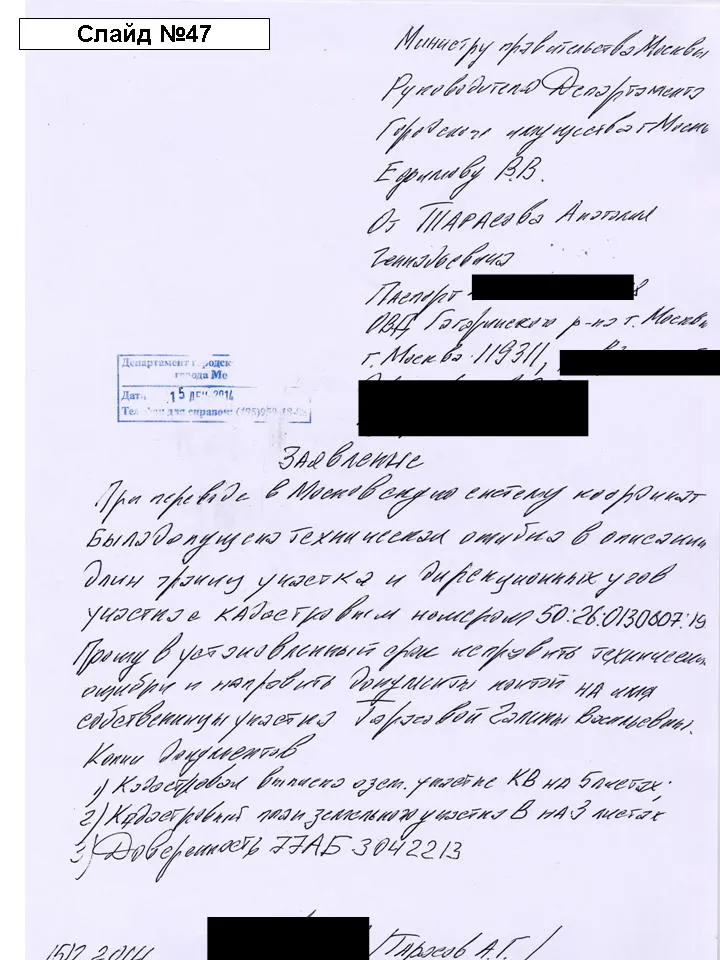 Слайд №47
Министру правительства Москвы
Руководителю Департамента
Городского имущества г Москв
Ефимову В.В.
От ТАРАСова Анатолия
Геннадьевича
Паспорт
ОВД Гагаринского р-на г. Москвы
г. Москва 119311,
Департамент городск
города Мо
Дата 15 ДЕК 2014
Телефон для справок: (495)959-18-88
ЗАЯВЛЕНИЕ
При переводе в Московскую систему координат
Была допущена техническая ошибка в описании
длин границ участка и дирекционных углов
участка с КАдастровым номером 50:26:0130607:19
Прошу в установленный срок исправить технические
ошибки и направить документы почтой на имя
собственницы участка Тарасовой Галины Васильевны.
Копии документов
1) Кадастровая выписка о зем. участке КВ на 5 листах.
2) Кадастровый план земельного участка В на 3 листах
3) Доверенность 77АБ 3042213
/Тарасов А.Г./